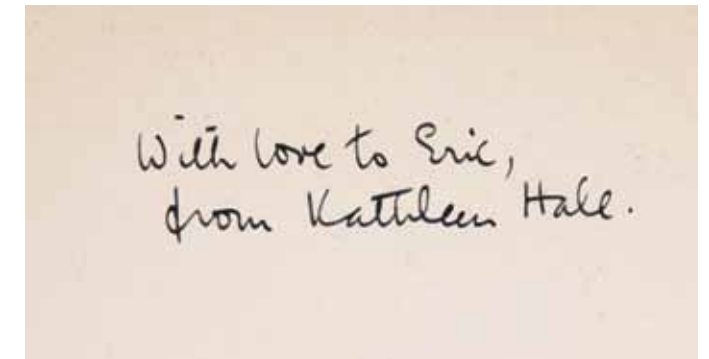 With love to Eric,
from Kathleen Hale.